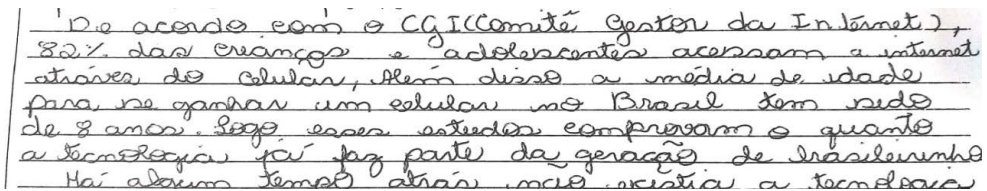 De acordo com o CGI(Comitê Gestor da Internet),
82% das crianças e adolescentes acessam a internet
atráves do celular, Alem disso a média de idade
para se ganhar um celular no Brasil tem sido
de 8 anos. Logo esses estudos comprovam o quanto
a tecnologia já faz parte da geração de brasileirinho
Há algum tempo atrás não existia a tecnologia